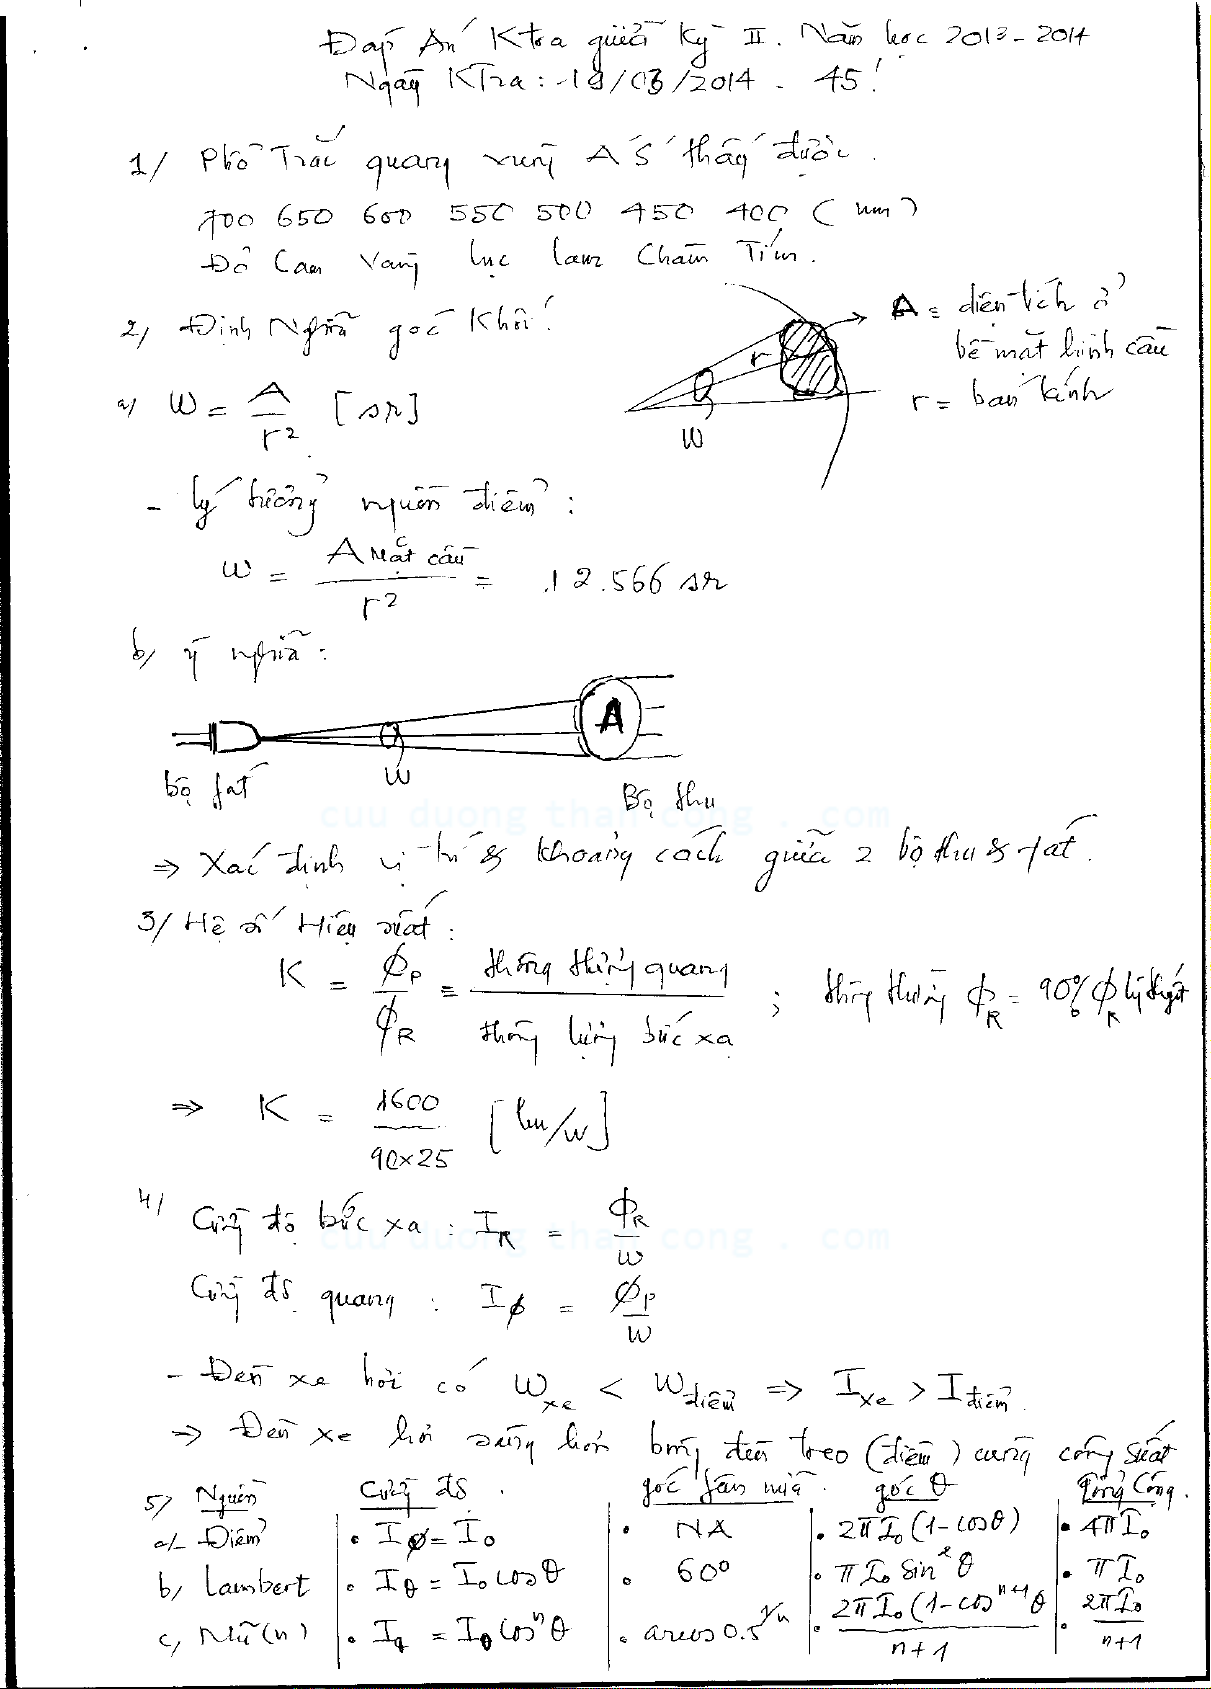 Đáp Án Ktra giữa kỳ II. Năm học 2013-2014
Ngày KTra: 18/03/2014 - 45'
1/ Phổ Trắc quang vùng AS thấy được.
700 650 600 550 500 450 400 (nm)
Đỏ Cam Vàng Lục Lam Chàm Tím.
2/ Định Nghĩa góc khối:
A = diện tích ở
bề mặt hình cầu
r = bán kính
r
ω
a/ ω = A/r² [sr]
- lý tưởng nguồn điểm:
ω = A mặt cầu / r² = 12.566 sr
b/ ý nghĩa:
A
ω
bộ fát
Bộ thu
cuu duong than cong . com
⇒ Xác định vị trí & khoảng cách giữa 2 bộ thu & fát.
3/ Hệ số Hiệu suất:
K = ϕP/ϕR = thông lượng quang / thông lượng bức xạ ; thông thường ϕR = 90% ϕR lý thuyết
⇒ K = 1600 / 90×25 [lm/w]
4/ Cường độ bức xạ: IR = ϕR/ω
cuu duong than cong . com
Cường độ quang: Iϕ = ϕP/ω
- Đèn xe hơi có ωxe < ωđiểm ⇒ Ixe > Iđiểm.
⇒ Đèn xe hơi sáng hơn bóng đèn treo (điểm) cùng công suất
5/ Nguồn Cường độ. góc fân nửa. góc θ Tổng Cộng.
a/ Điểm • Iϕ = I₀ • NA • 2πI₀(1-cosθ) • 4πI₀
b/ Lambert • Iθ = I₀ cosθ • 60° • πI₀ sin²θ • πI₀
c/ Mũ(n) • Iθ = I₀ cosⁿθ • arcos 0.5^1/n • 2πI₀(1-cosⁿ⁺¹θ / n+1 • 2πI₀ / n+1